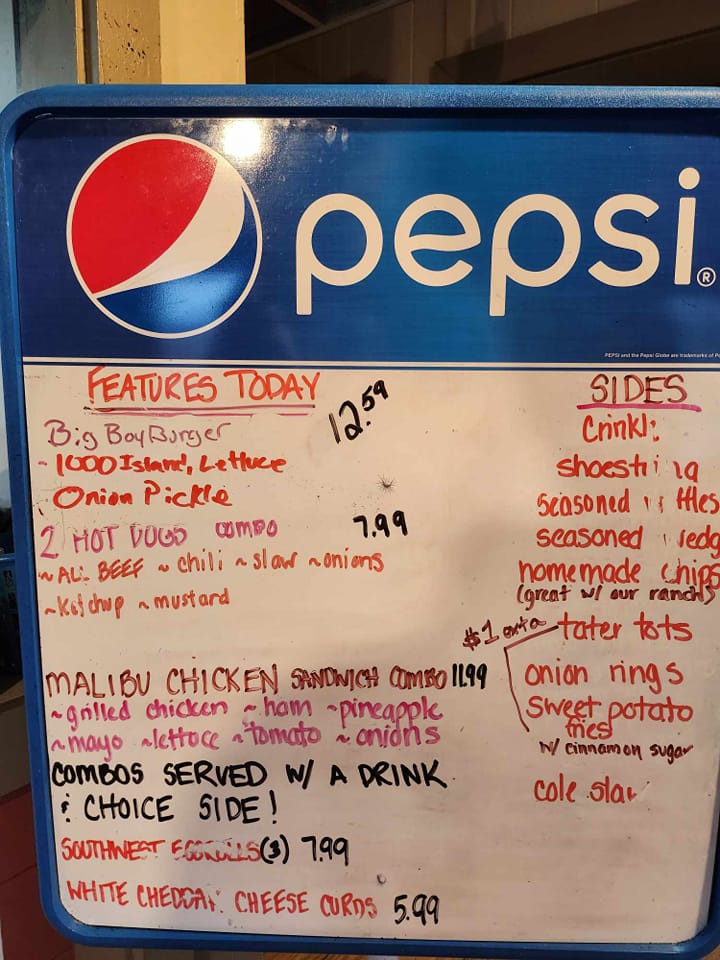 pepsi®
PEPSI and the Pepsi Globe are trademarks of
FEATURES TODAY
Big Boy Burger 12.59
- 1000 Island, Lettuce
Onion Pickle
2 HOT DOGS COMBO 7.99
~ALL BEEF ~chili ~slaw ~onions
~Ketchup ~mustard
MALIBU CHICKEN SANDWICH COMBO 11.99
~grilled chicken ~ham ~pineapple
~mayo ~lettuce ~tomato ~onions
COMBOS SERVED W/ A DRINK
& CHOICE SIDE!
SOUTHWEST EGGROLLS (3) 7.99
WHITE CHEDDAR CHEESE CURDS 5.99
SIDES
shoestring
seasoned
seasoned
homemade chips
(great w/ our ranch)
$1 extra tater tots
onion rings
sweet potato
fries
w/ cinnamon sugar
cole slaw